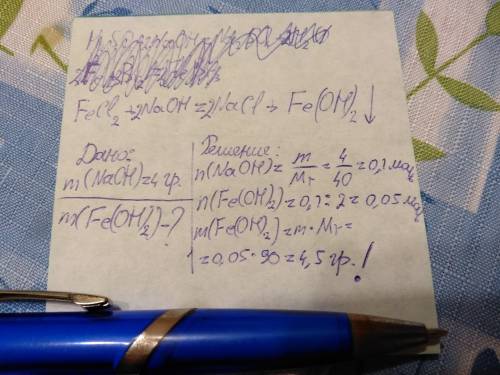 FeCl₂ + 2NaOH = 2NaCl + Fe(OH)₂ ↓
Дано:
m(NaOH)=4 гр.
m(Fe(OH)₂)-?
Решение:
n(NaOH)= m/Mr = 4/40 = 0,1 моль
n(Fe(OH)₂)=0,1:2=0,05 моль
m(Fe(OH)₂)=m·Mr=
=0,05·90=4,5 гр.!